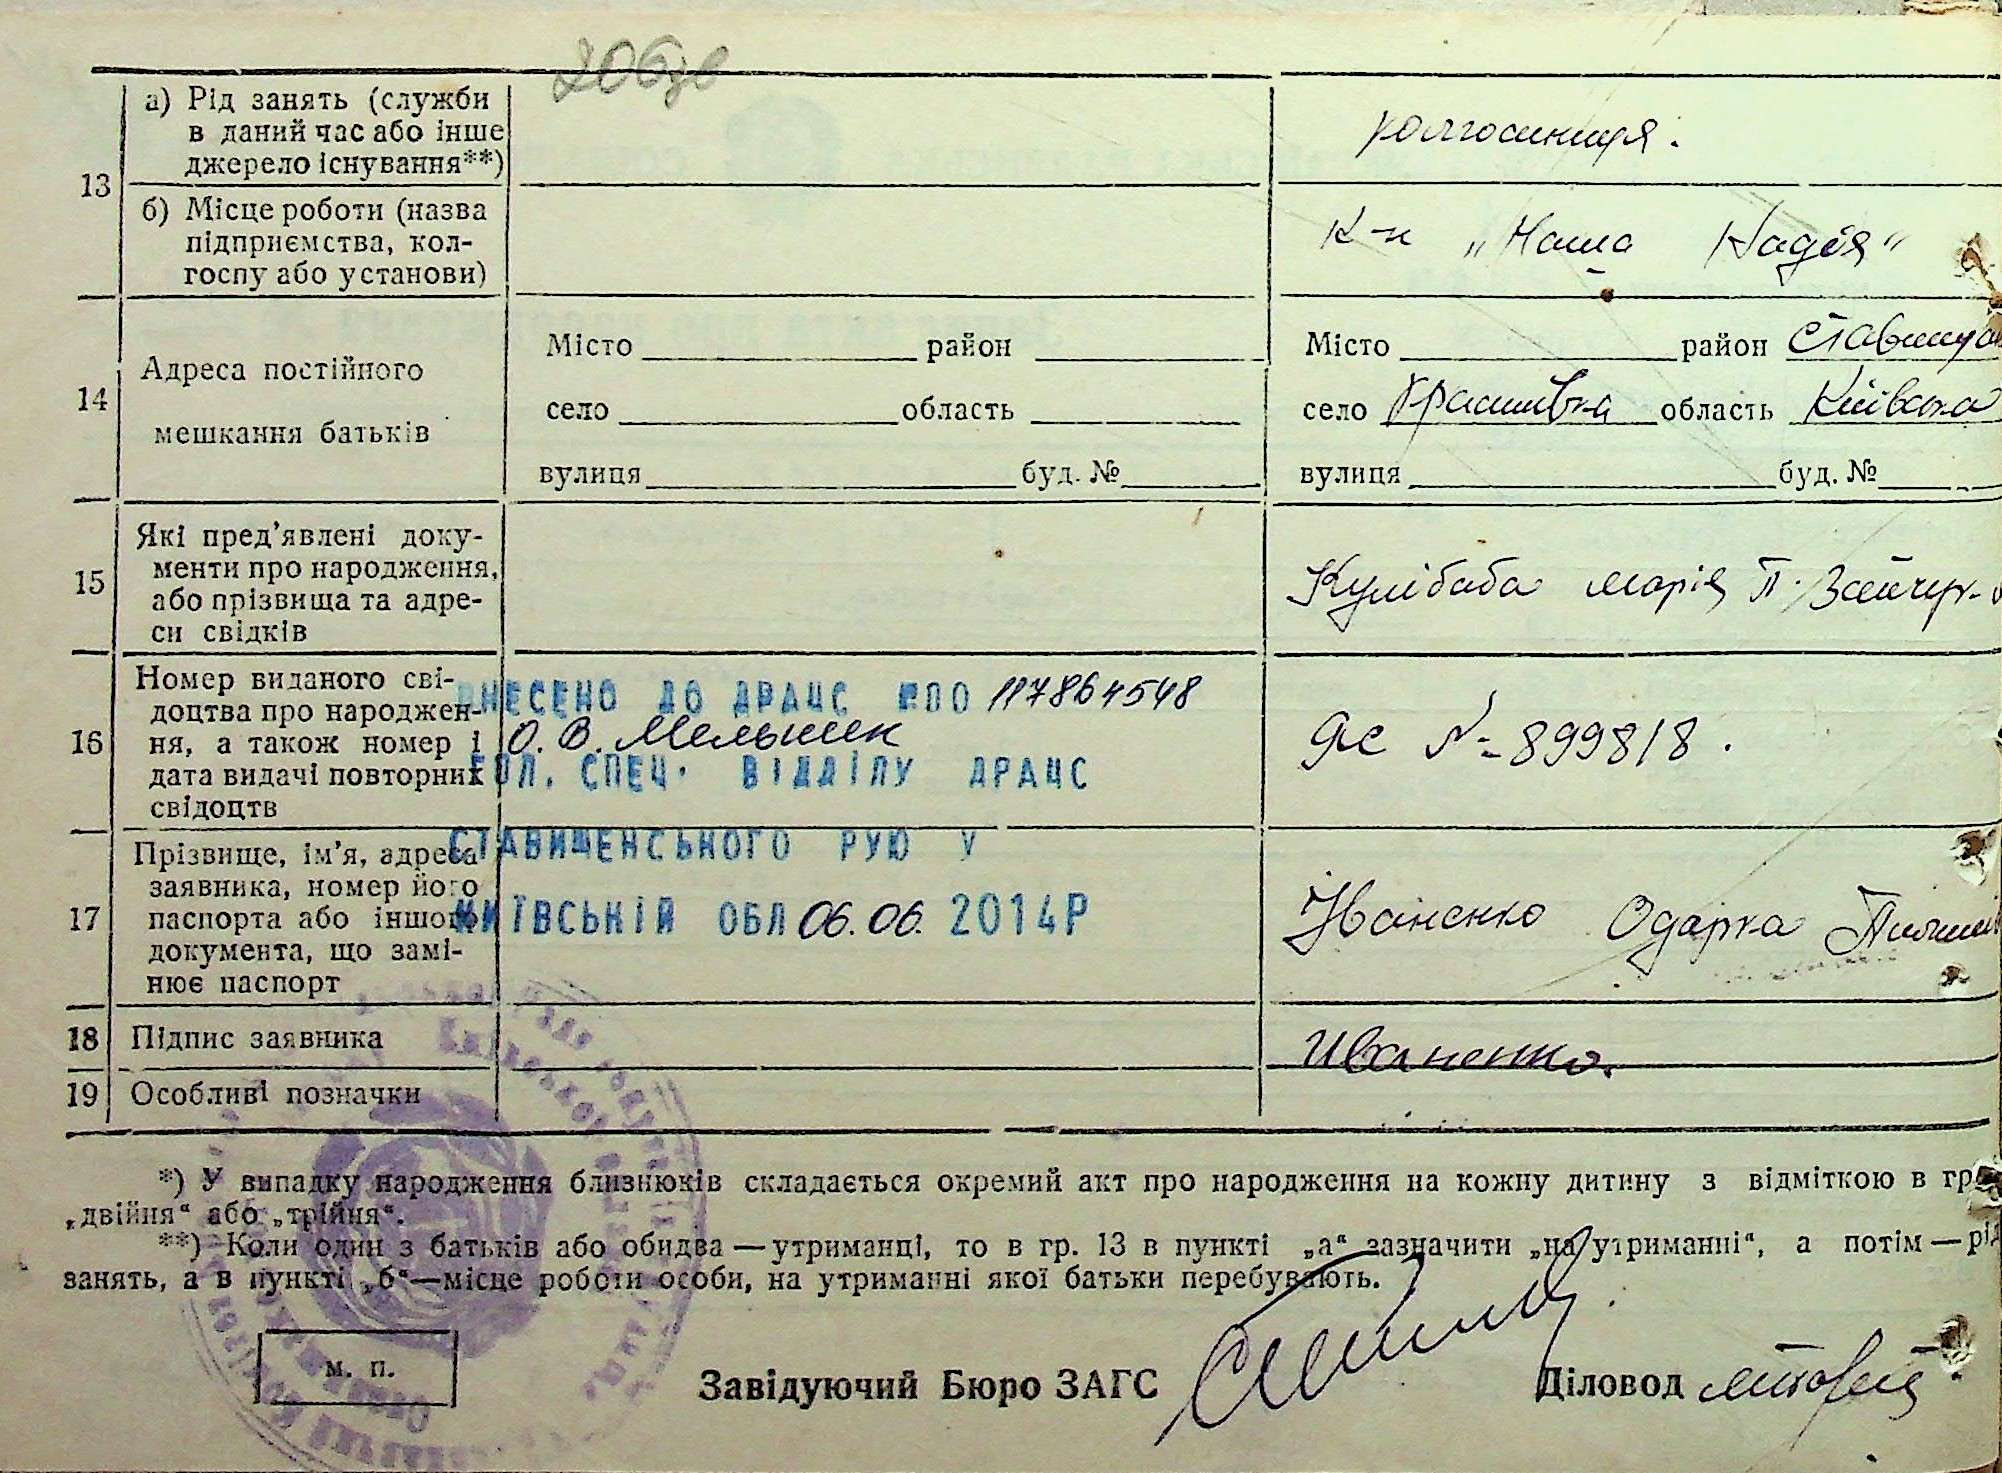 206зв
13
а) Рід занять (служби
в даний час або інше
джерело існування**)
колгоспниця.
б) Місце роботи (назва
підприємства, кол-
госпу або установи)
К-п „Наша Надія“
14
Адреса постійного
мешкання батьків
Місто район
село область
вулиця буд. №
Місто район Ставищан
село Красилівка область Київська
вулиця буд. №
15
Які пред’явлені доку-
менти про народження,
або прізвища та адре-
си свідків
Кулібаба Марія П.
16
Номер виданого сві-
доцтва про народжен-
ня, а також номер і
дата видачі повторних
свідоцтв
ЯС № 899818.
ВНЕСЕНО ДО ДРАЦС 117864548
О. В. Мельник
ГОЛ. СПЕЦ. ВІДДІЛУ ДРАЦС
СТАВИЩЕНСЬКОГО РУЮ У
КИЇВСЬКІЙ ОБЛ 06.06. 2014Р
17
Прізвище, ім’я, адреса
заявника, номер його
паспорта або іншого
документа, що замі-
нює паспорт
Іваненко Одарка
18
Підпис заявника
Иваненко.
19
Особливі позначки
*) У випадку народження близнюків складається окремий акт про народження на кожну дитину з відміткою в гр.
„двійня“ або „трійня“.
**) Коли один з батьків або обидва — утриманці, то в гр. 13 в пункті „а“ зазначити „на утриманні“, а потім — рід
занять, а в пункті „б“ — місце роботи особи, на утриманні якої батьки перебувають.
м. п.
Завідуючий Бюро ЗАГС
Діловод